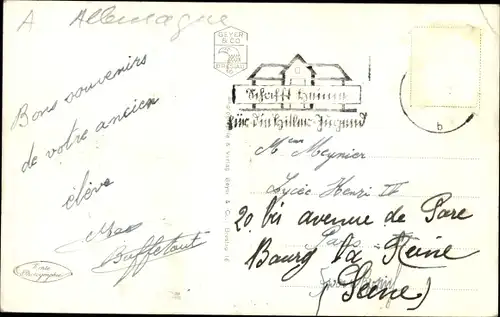 A Allemagne
Bons souvenirs
de votre ancien
élève
Buffetaut
Echte Photographie
GEYER
& CO
BRESLAU
16
Schafft Heime
für die Hitler-Jugend
b
Meynier
Lycée Henri IV
20 bis avenue de
Paris
Bourg la Reine
(Seine)